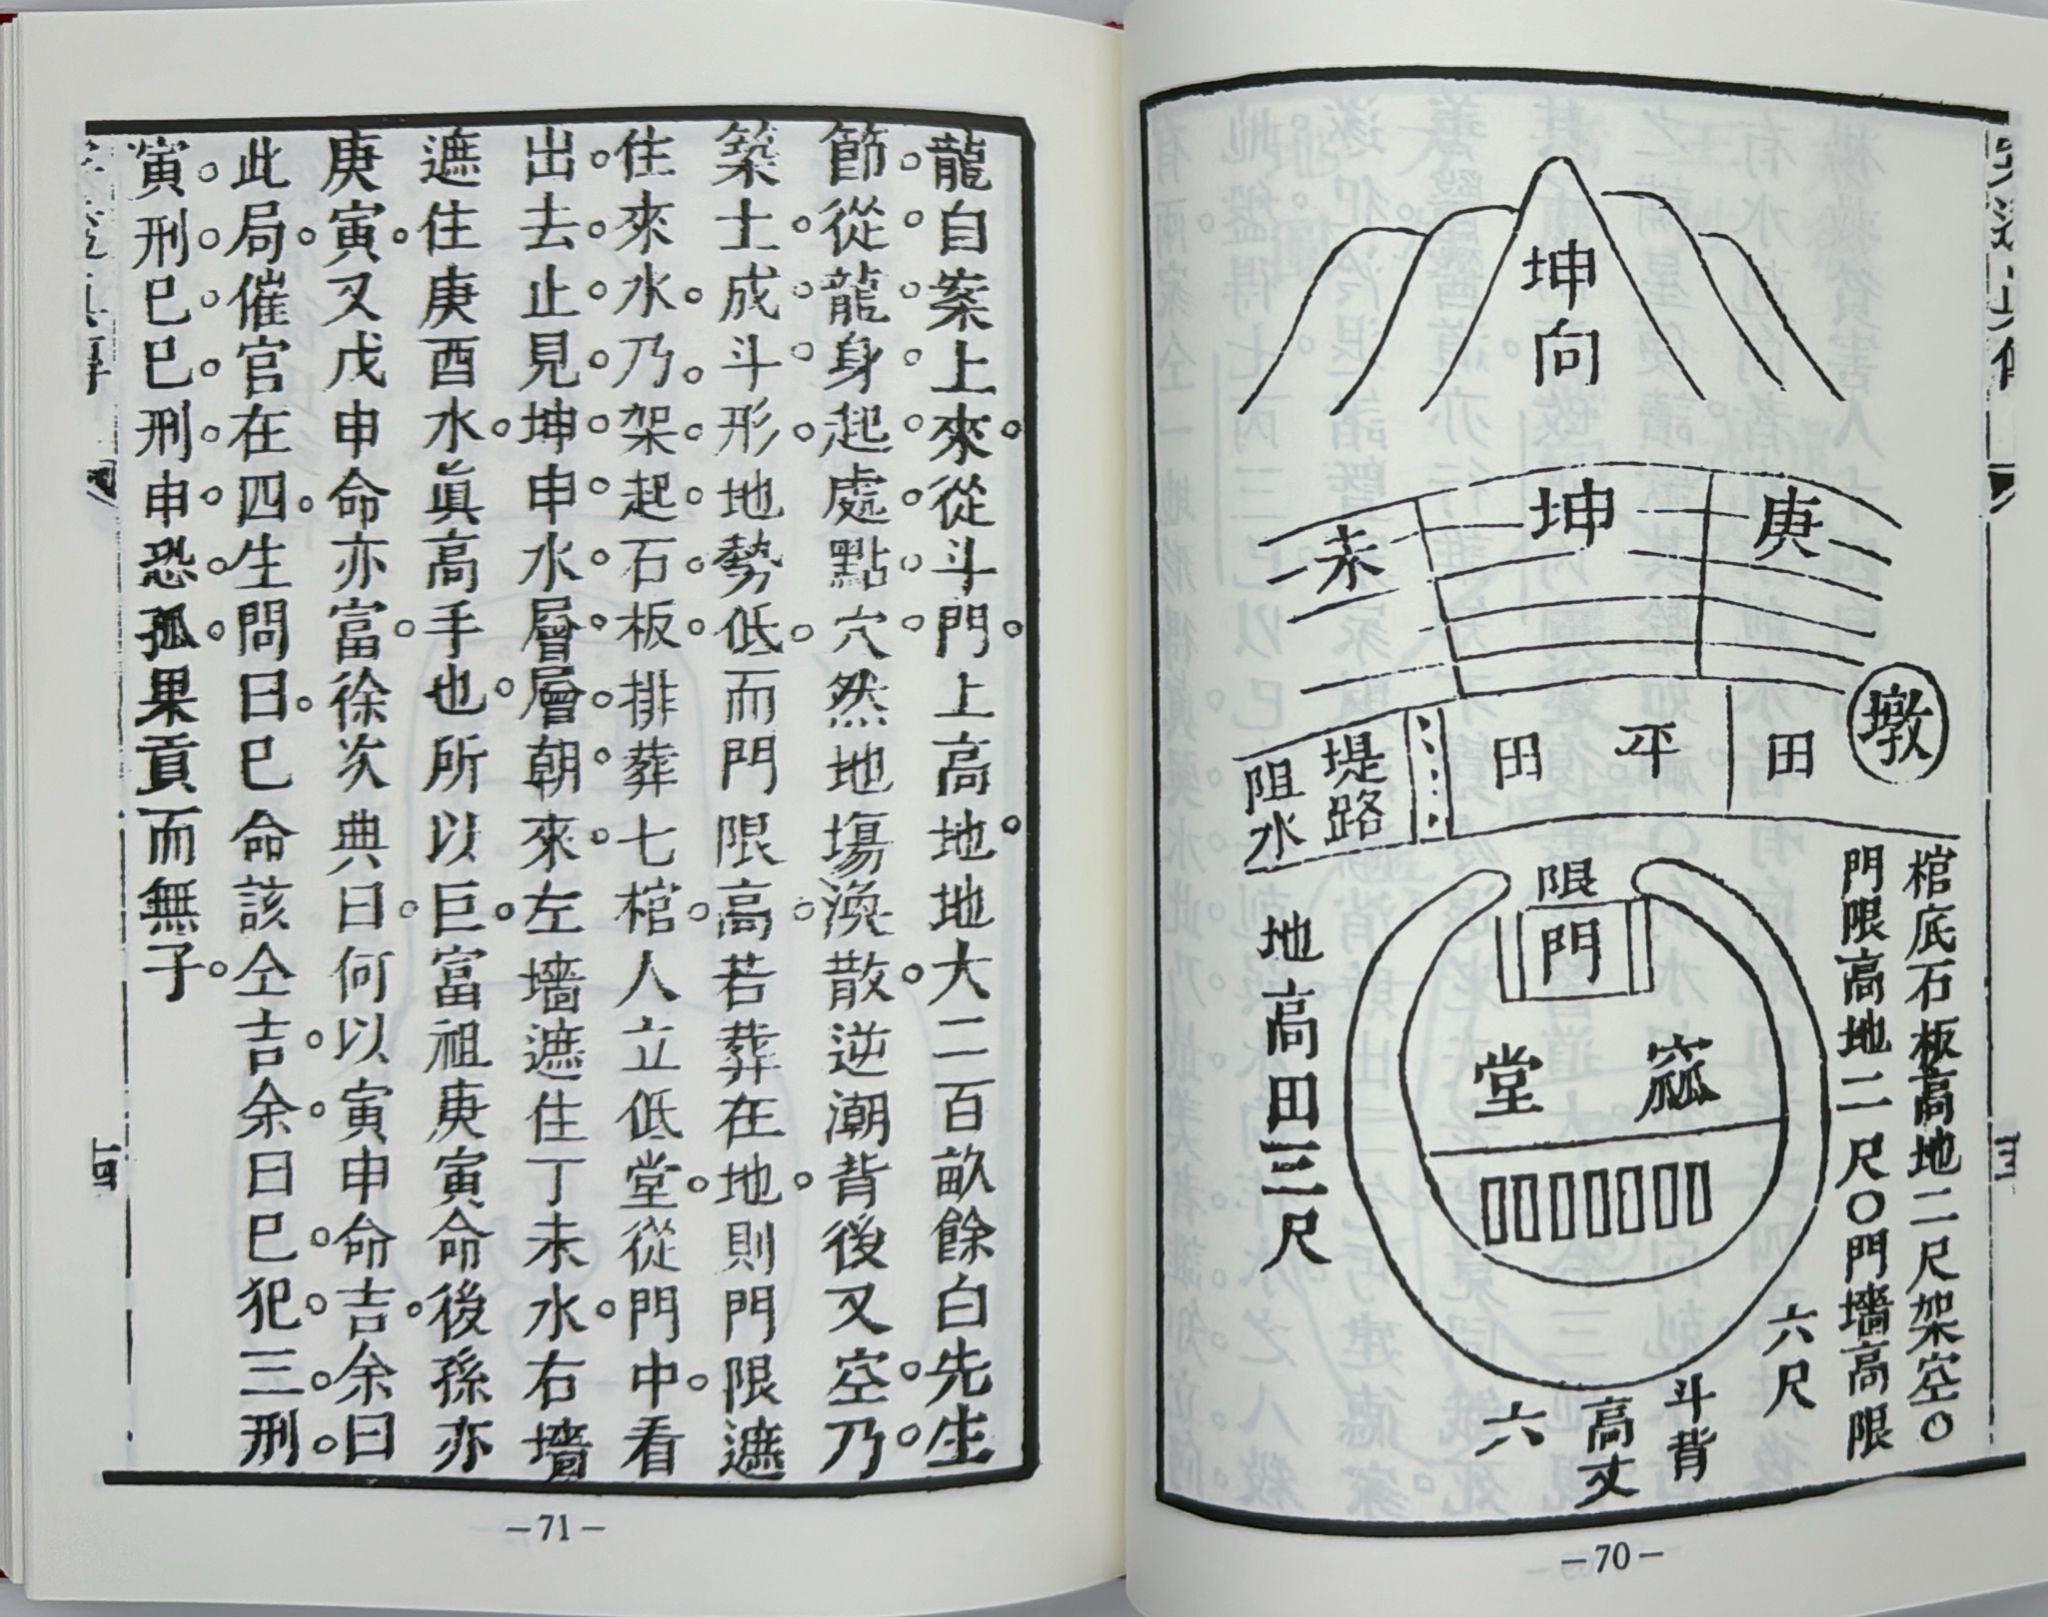 坤向
庚
坤
未
墩
田
平田
堤路
阻水
棺底石板高地二尺架空○
門限高地二尺○門墻高限
六尺
限
門
窳堂
地高田三尺
斗背
高丈
六
－70－
龍自案上來從斗門上高地地大二百畝餘白先生
節從龍身起處點穴然地塲渙散逆潮背後又空乃
築土成斗形地勢低而門限高若葬在地則門限遮
住來水乃架起石板排葬七棺人立低堂從門中看
出去止見坤申水層層朝來左墻遮住丁未水右墻
遮住庚酉水眞高手也所以巨富祖庚寅命後孫亦
庚寅又戊申命亦富徐次典曰何以寅申命吉余曰
此局催官在四生問曰巳命該仝吉余曰巳犯三刑
寅刑巳巳刑申恐孤果貢而無子
－71－